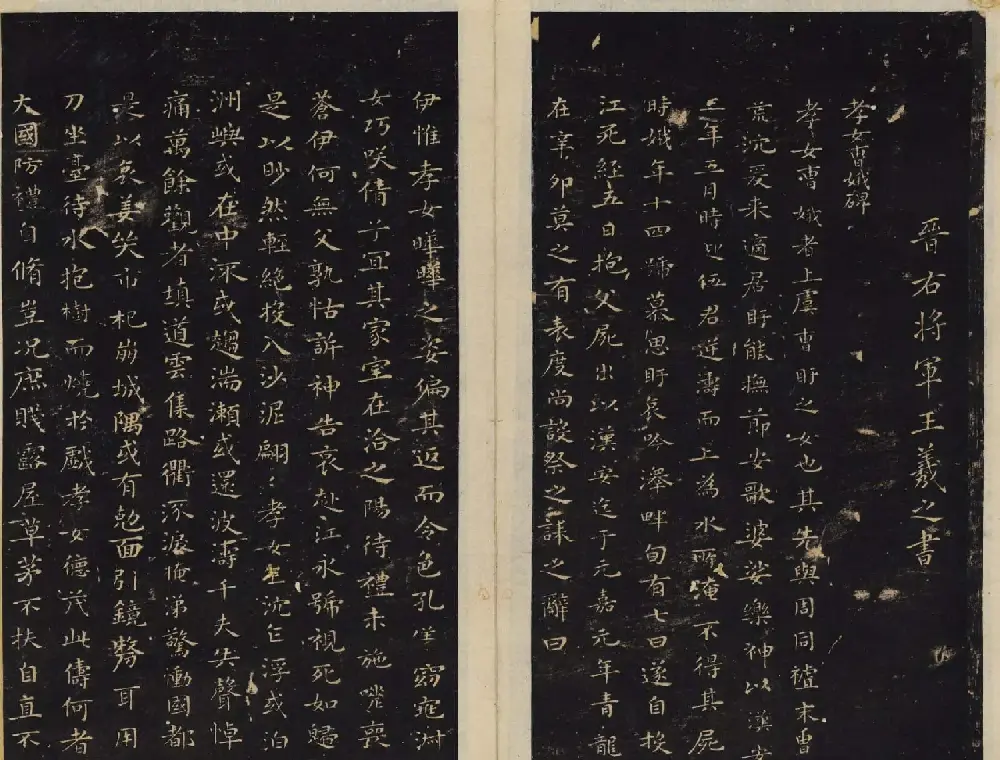 晉右將軍王羲之書
孝女曹娥碑
孝女曹娥者上虞曹盱之女也其先與周同祖末胄
荒沈爰来適居盱能撫節安歌婆娑樂神以漢安
二年五月時迎伍君逆濤而上為水所淹不得其屍
時娥年十四號慕思盱哀吟澤畔旬有七日遂自投
江死經五日抱父屍出以漢安迄于元嘉元年青龍
在辛卯莫之有表度尚設祭之誄之辭曰
伊惟孝女曄曄之姿偏其返而令色孔儀窈窕淑
女巧咲倩兮宜其家室在洽之陽待禮未施嗟喪
蒼伊何無父孰怙訴神告哀赴江永號視死如歸
是以眇然輕絕投入沙泥翩〻孝女乍沈乍浮或泊
洲嶼或在中流或趨湍瀨或還波濤千夫失聲悼
痛萬餘觀者填道雲集路衢流淚掩涕驚慟國都
是以哀姜哭市杞崩城隅或有剋面引鏡剺耳用
刀坐臺待水抱樹而燒於戲孝女德茂此儔何者
大國防禮自脩豈況庶賤露屋草茅不扶自直不